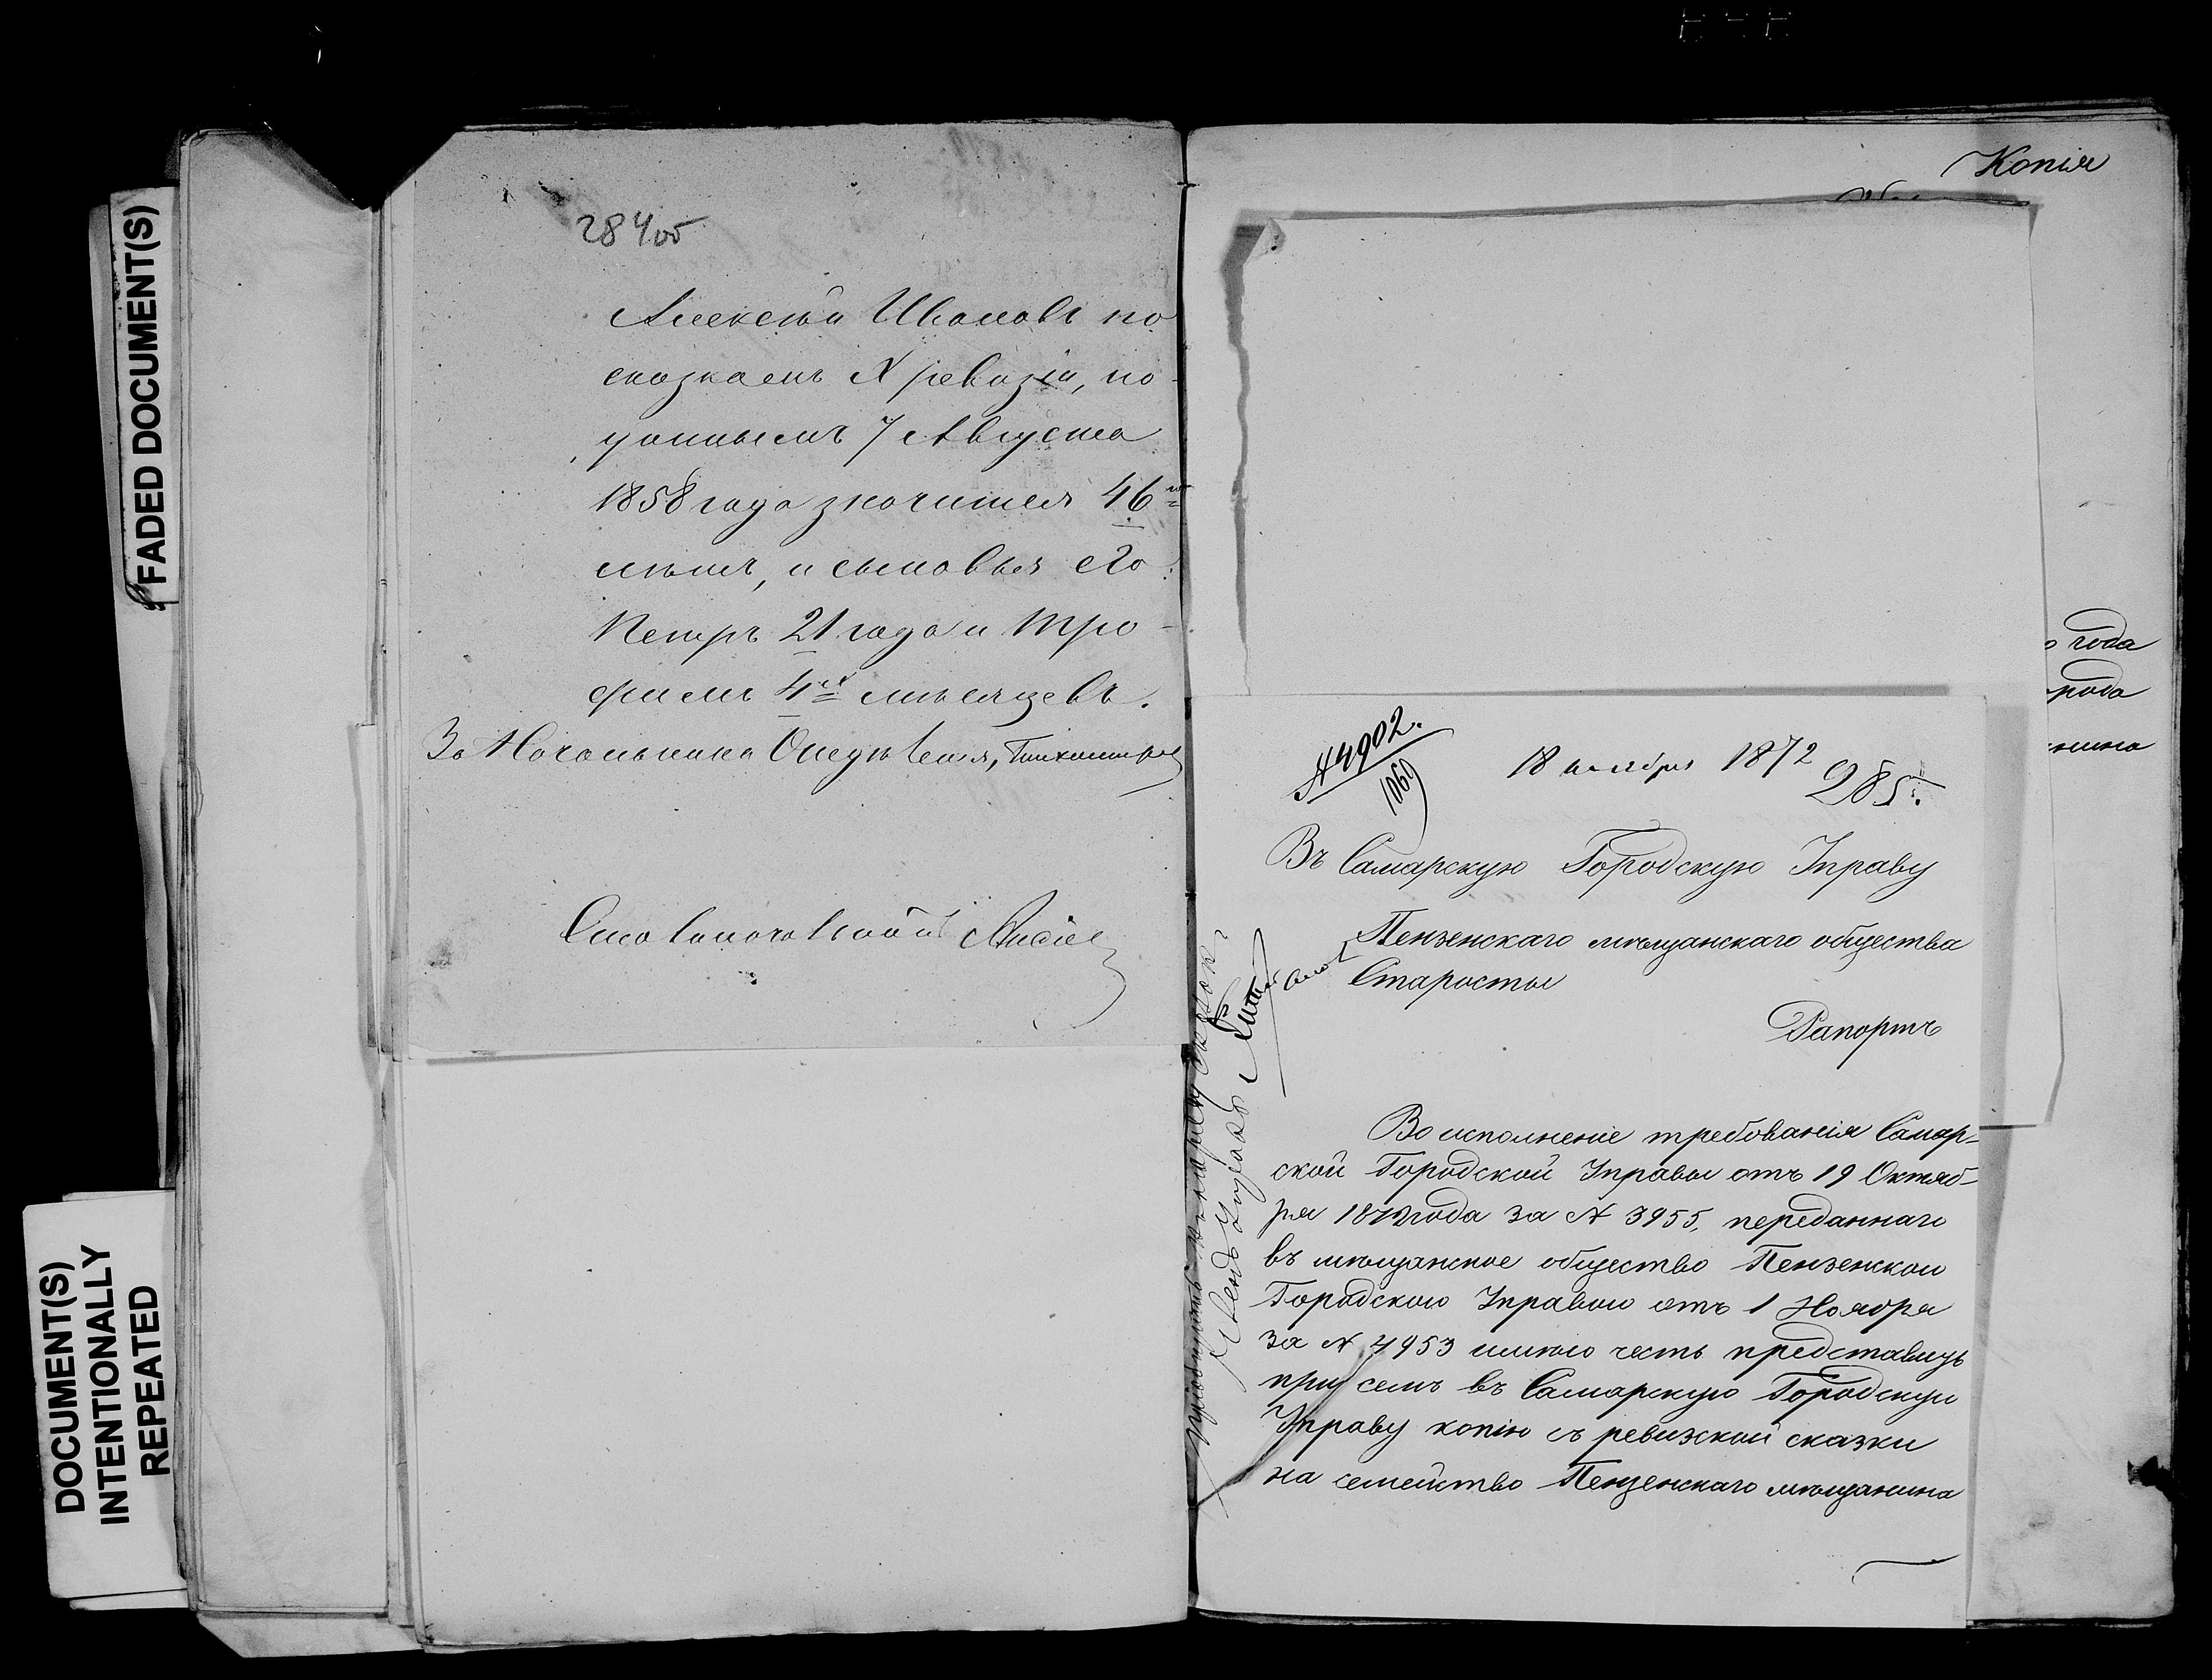 FADED DOCUMENT(S)
DOCUMENT(S)
INTENTIONALLY
REPEATED
284об
Алексей Ивановъ по
сказкамъ X ревизiи, по-
даннымъ 7 Августа
1858 года значится 46ти
лѣтъ, и сыновья его:
Петръ 21 года и Тро-
фимъ 4хъ мѣсяцевъ.
За Начальника Отдѣленiя,
Копiя
года
рода
нина
№ 4902.
1069
18 ноября 1872
285.
Въ Самарскую Городскую Управу
Пензенскаго мѣщанскаго общества
Старосты
Рапортъ
Во исполненiе требованiя Самар-
ской Городской Управы отъ 19 Октяб-
ря 1872 года за № 3955, переданнаго
въ мѣщанское общество Пензенскою
Городскою Управою отъ 1 Ноября
за № 4953 имѣю честь представить
при семъ въ Самарскую Городскую
Управу копiю съ ревизской сказки
на семейство Пензенскаго мѣщанина